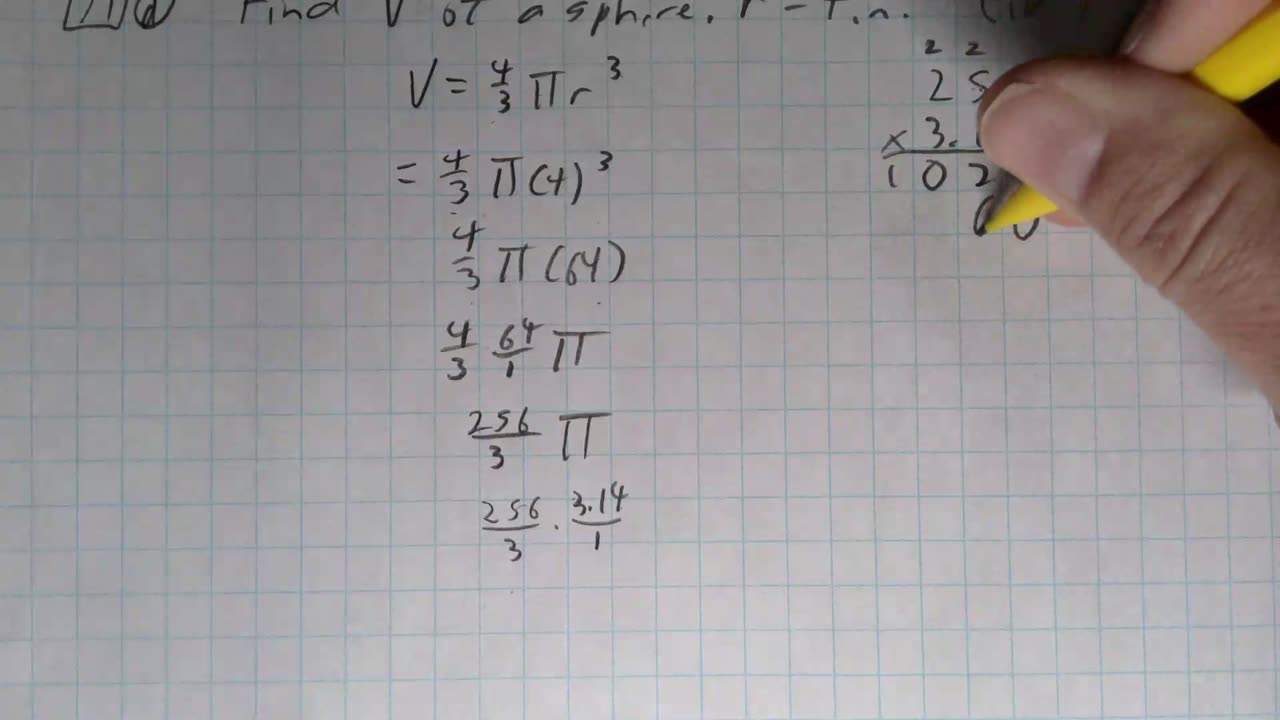 Find V of a sphere. r = 4in.
V = 4/3 πr³
= 4/3 π(4)³
4/3 π(64)
4/3 64/1 π
256/3 π
256/3 · 3.14/1
2 2
2 5
x 3.1
1 0 2
6 0